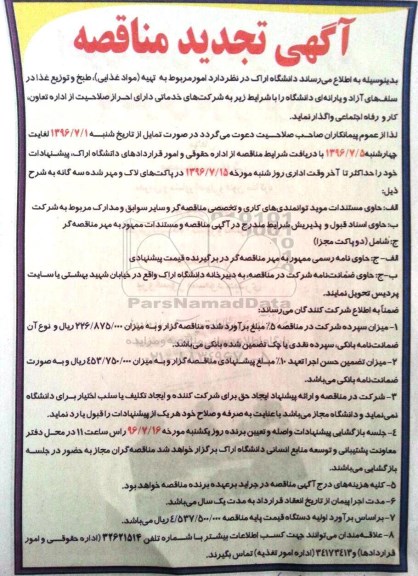 آگهی تجدید مناقصه
بدینوسیله به اطلاع می‌رساند دانشگاه اراک در نظر دارد امور مربوط به تهیه (مواد غذایی)، طبخ و توزیع غذا در
سلف‌های آزاد و یارانه‌ای دانشگاه را با شرایط زیر به شرکت‌های خدماتی دارای احراز صلاحیت از اداره تعاون،
کار و رفاه اجتماعی واگذار نماید.
لذا از عموم پیمانکاران صاحب صلاحیت دعوت می‌گردد در صورت تمایل از تاریخ شنبه ۱۳۹۶/۷/۱ لغایت
چهارشنبه ۱۳۹۶/۷/۵ با دریافت شرایط مناقصه از اداره حقوقی و امور قراردادهای دانشگاه اراک، پیشنهادات
خود را حداکثر تا آخر وقت اداری روز شنبه مورخه ۱۳۹۶/۷/۱۵ در پاکت‌های لاک و مهر شده سه گانه به شرح
ذیل:
الف: حاوی مستندات موید توانمندی‌های کاری و تخصصی مناقصه‌گر و سایر سوابق و مدارک مربوط به شرکت
ب: حاوی اسناد قبول و پذیرش شرایط مندرج در آگهی مناقصه و مستندات ممهور به مهر مناقصه‌گر
ج: شامل (دو پاکت مجزا)
الف-ج: حاوی نامه رسمی ممهور به مهر مناقصه‌گر در برگیرنده قیمت پیشنهادی
ب-ج: حاوی ضمانت‌نامه شرکت در مناقصه، به دبیرخانه دانشگاه اراک واقع در خیابان شهید بهشتی یا سایت
پردیس تحویل نمایند.
ParsNamadData
ضمناً به اطلاع شرکت کنندگان می‌رساند:
۱- میزان سپرده شرکت در مناقصه ۵٪ مبلغ برآورد شده مناقصه‌گزار و به میزان ۲۲۶/۸۷۵/۰۰۰ ریال و نوع آن
ضمانت‌نامه بانکی، سپرده نقدی یا چک تضمین شده بانکی می‌باشد.
۲- میزان تضمین حسن اجرا تعهد ۱۰٪ مبلغ پیشنهادی مناقصه‌گزار و به میزان ۴۵۳/۷۵۰/۰۰۰ ریال و به صورت
ضمانت‌نامه بانکی می‌باشد.
۳- شرکت در مناقصه و ارائه پیشنهاد ایجاد حق برای شرکت کننده و ایجاد تکلیف یا سلب اختیار برای دانشگاه
نمی‌نماید و دانشگاه مجاز می‌باشد با عنایت به صرفه و صلاح خود هر یک از پیشنهادات را قبول یا رد نماید.
۴- جلسه بازگشایی پیشنهادات واصله و تعیین برنده روز یکشنبه مورخه ۹۶/۷/۱۶ راس ساعت ۱۱ در محل دفتر
معاونت پشتیبانی و توسعه منابع انسانی دانشگاه اراک برگزار خواهد شد مناقصه‌گران مجاز به حضور در جلسه
بازگشایی می‌باشند.
۵- کلیه هزینه‌های درج آگهی مناقصه در جراید برعهده برنده مناقصه خواهد بود.
۶- مدت اجرا پیمان از تاریخ انعقاد قرارداد به مدت یک سال می‌باشد.
۷- بر اساس برآورد اولیه دستگاه قیمت پایه مناقصه ۴/۵۳۷/۵۰۰/۰۰۰ ریال می‌باشد.
۸- علاقه‌مندان می‌توانند جهت کسب اطلاعات بیشتر با شماره تلفن ۳۲۶۲۱۵۱۴ (اداره حقوقی و امور
قراردادها) و ۳۴۱۷۳۴۱۳ (اداره امور تغذیه) تماس بگیرند.